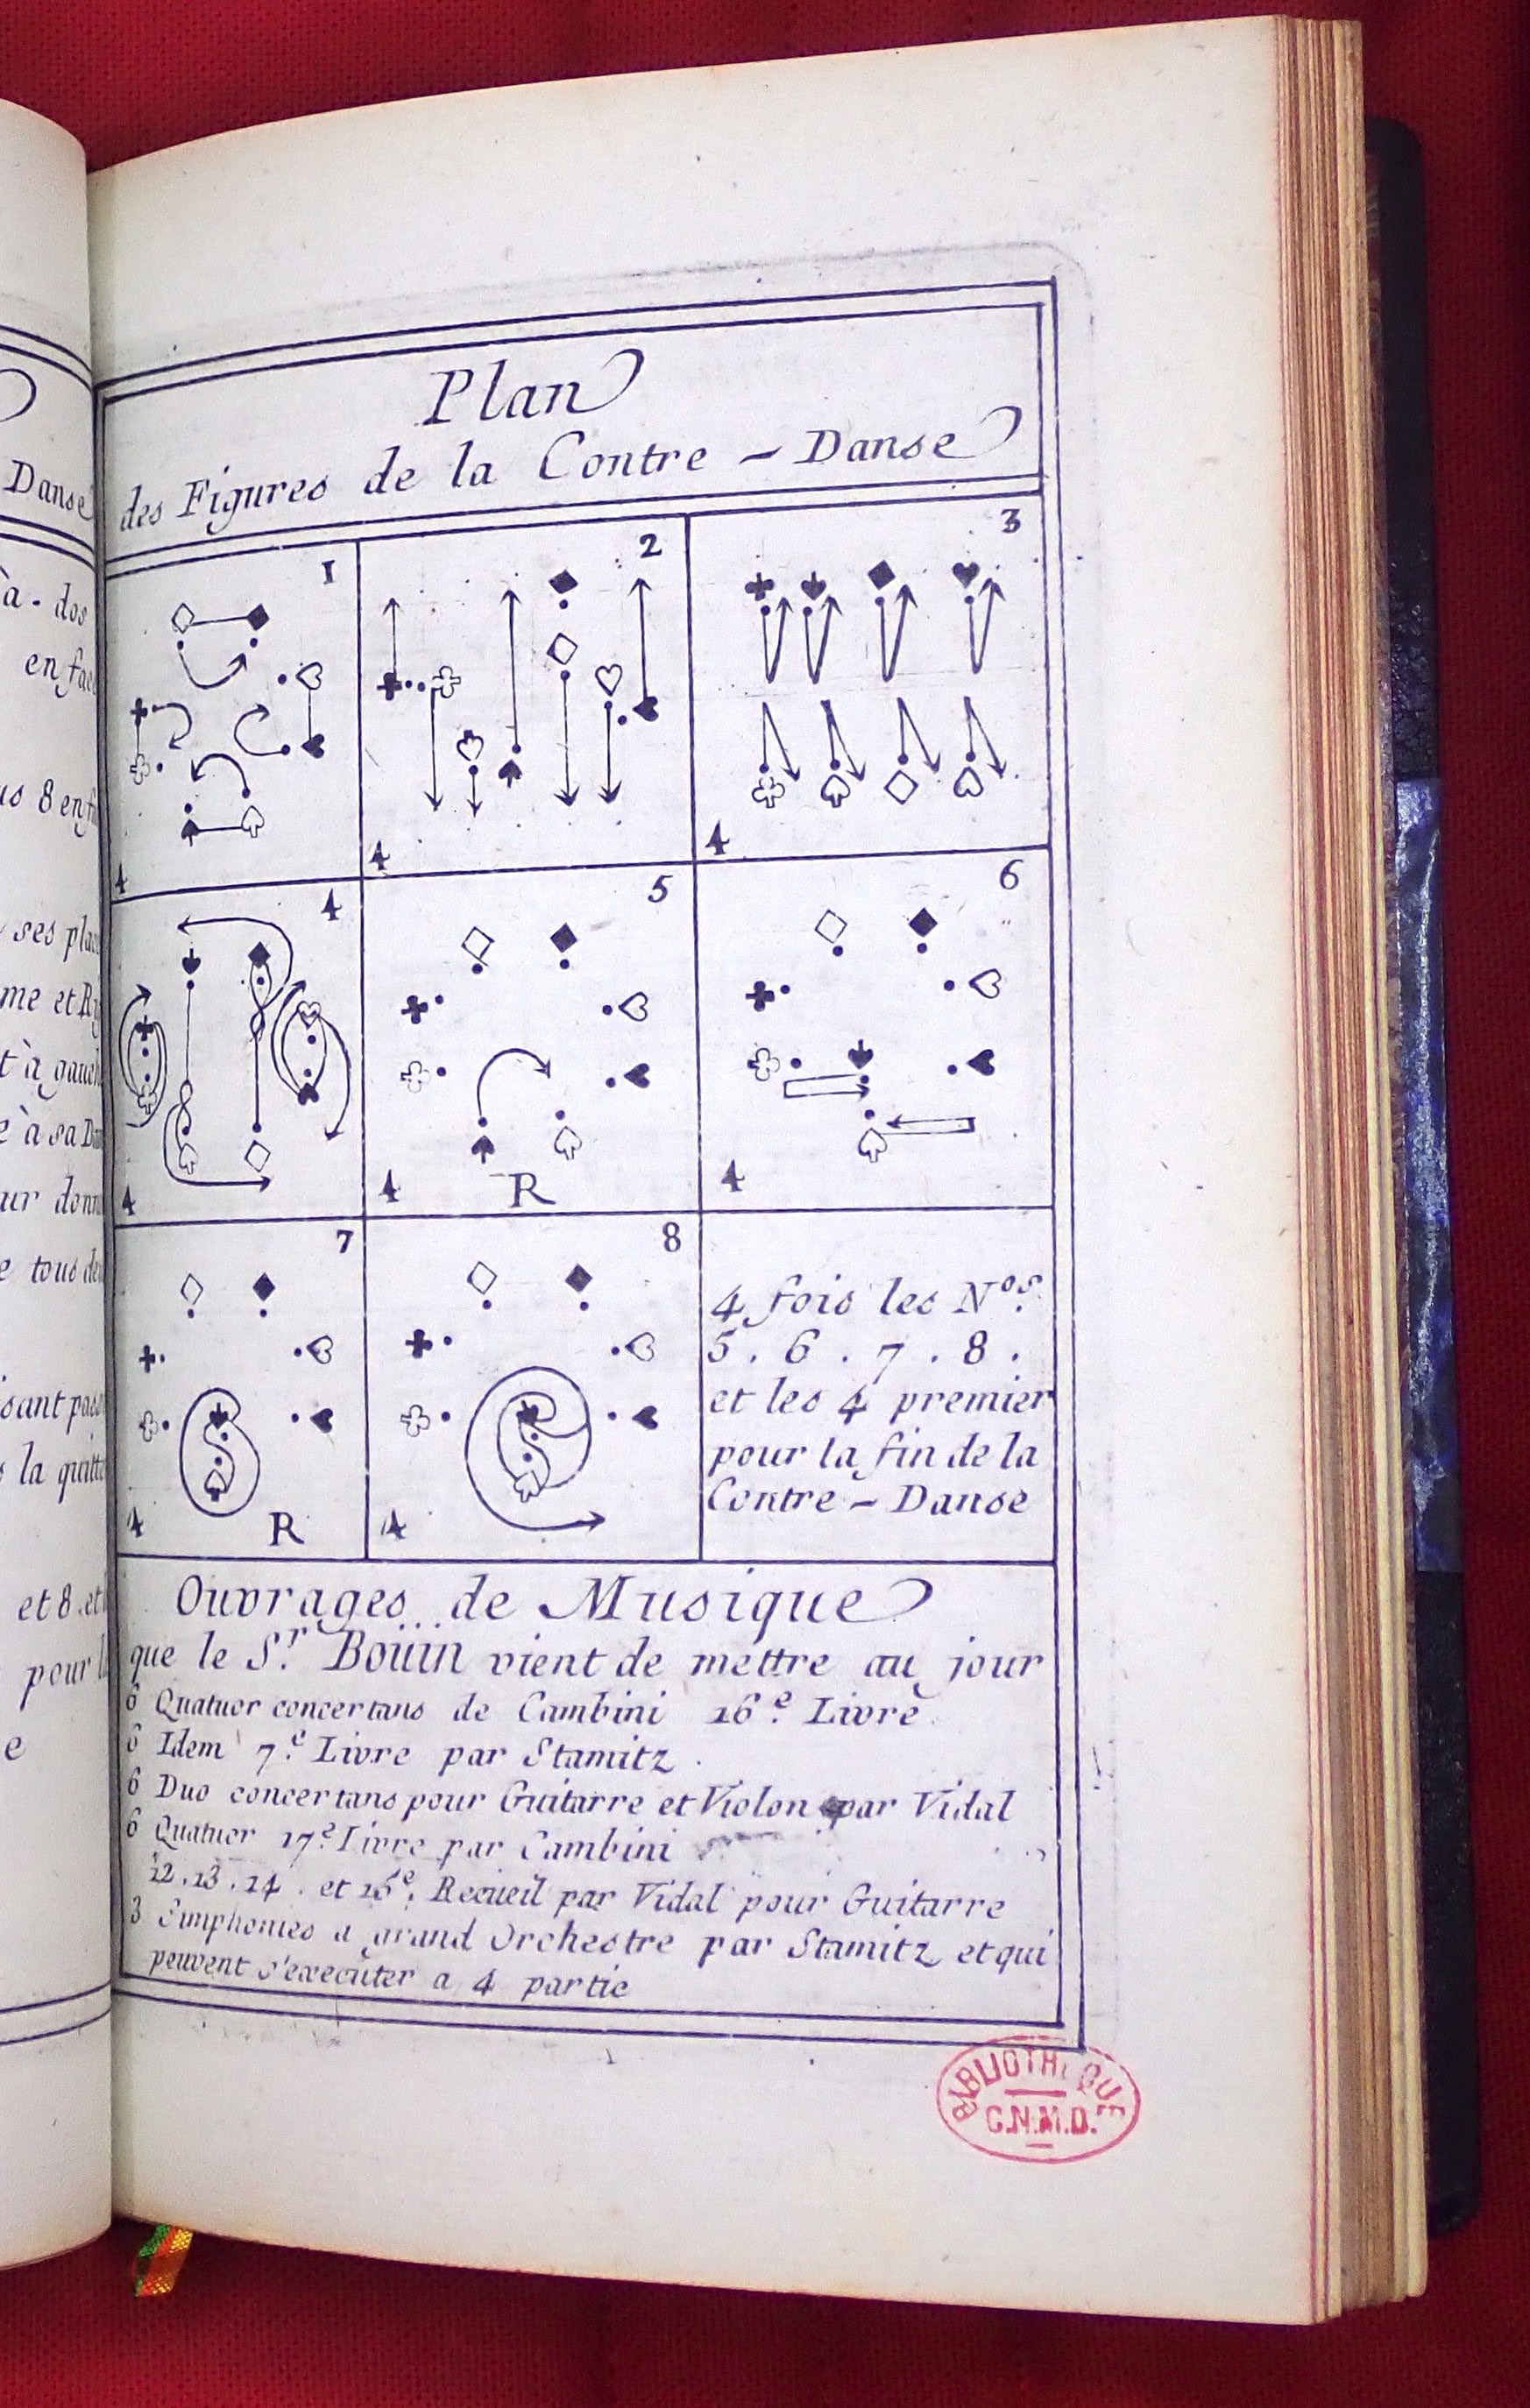 Danse
à-dos
en face
ses plac
me et R
t à gauch
e à sa D
ur donn
e tous de
sant pas
s la quitte
et 8 et
pour l
e
Plan
des Figures de la Contre - Danse
1
2
3
4
4
4
4
5
6
4
4
R
4
7
8
4 fois les Nos.
5 . 6 . 7 . 8 .
et les 4 premier
pour la fin de la
Contre - Danse
4
R
4
Ouvrages de Musique
que le Sr. Boüin vient de mettre au jour
6 Quatuor concertans de Cambini 16e. Livre
6 Idem 7e. Livre par Stamitz .
6 Duo concertans pour Guitarre et Violon par Vidal
6 Quatuor 17e. Livre par Cambini
12 . 13 . 14 . et 15e. Recueil par Vidal pour Guitarre
3 Simphonies a grand Orchestre par Stamitz et qui
peuvent s'executer a 4 partie
BIBLIOTHEQUE
C.N.M.D.